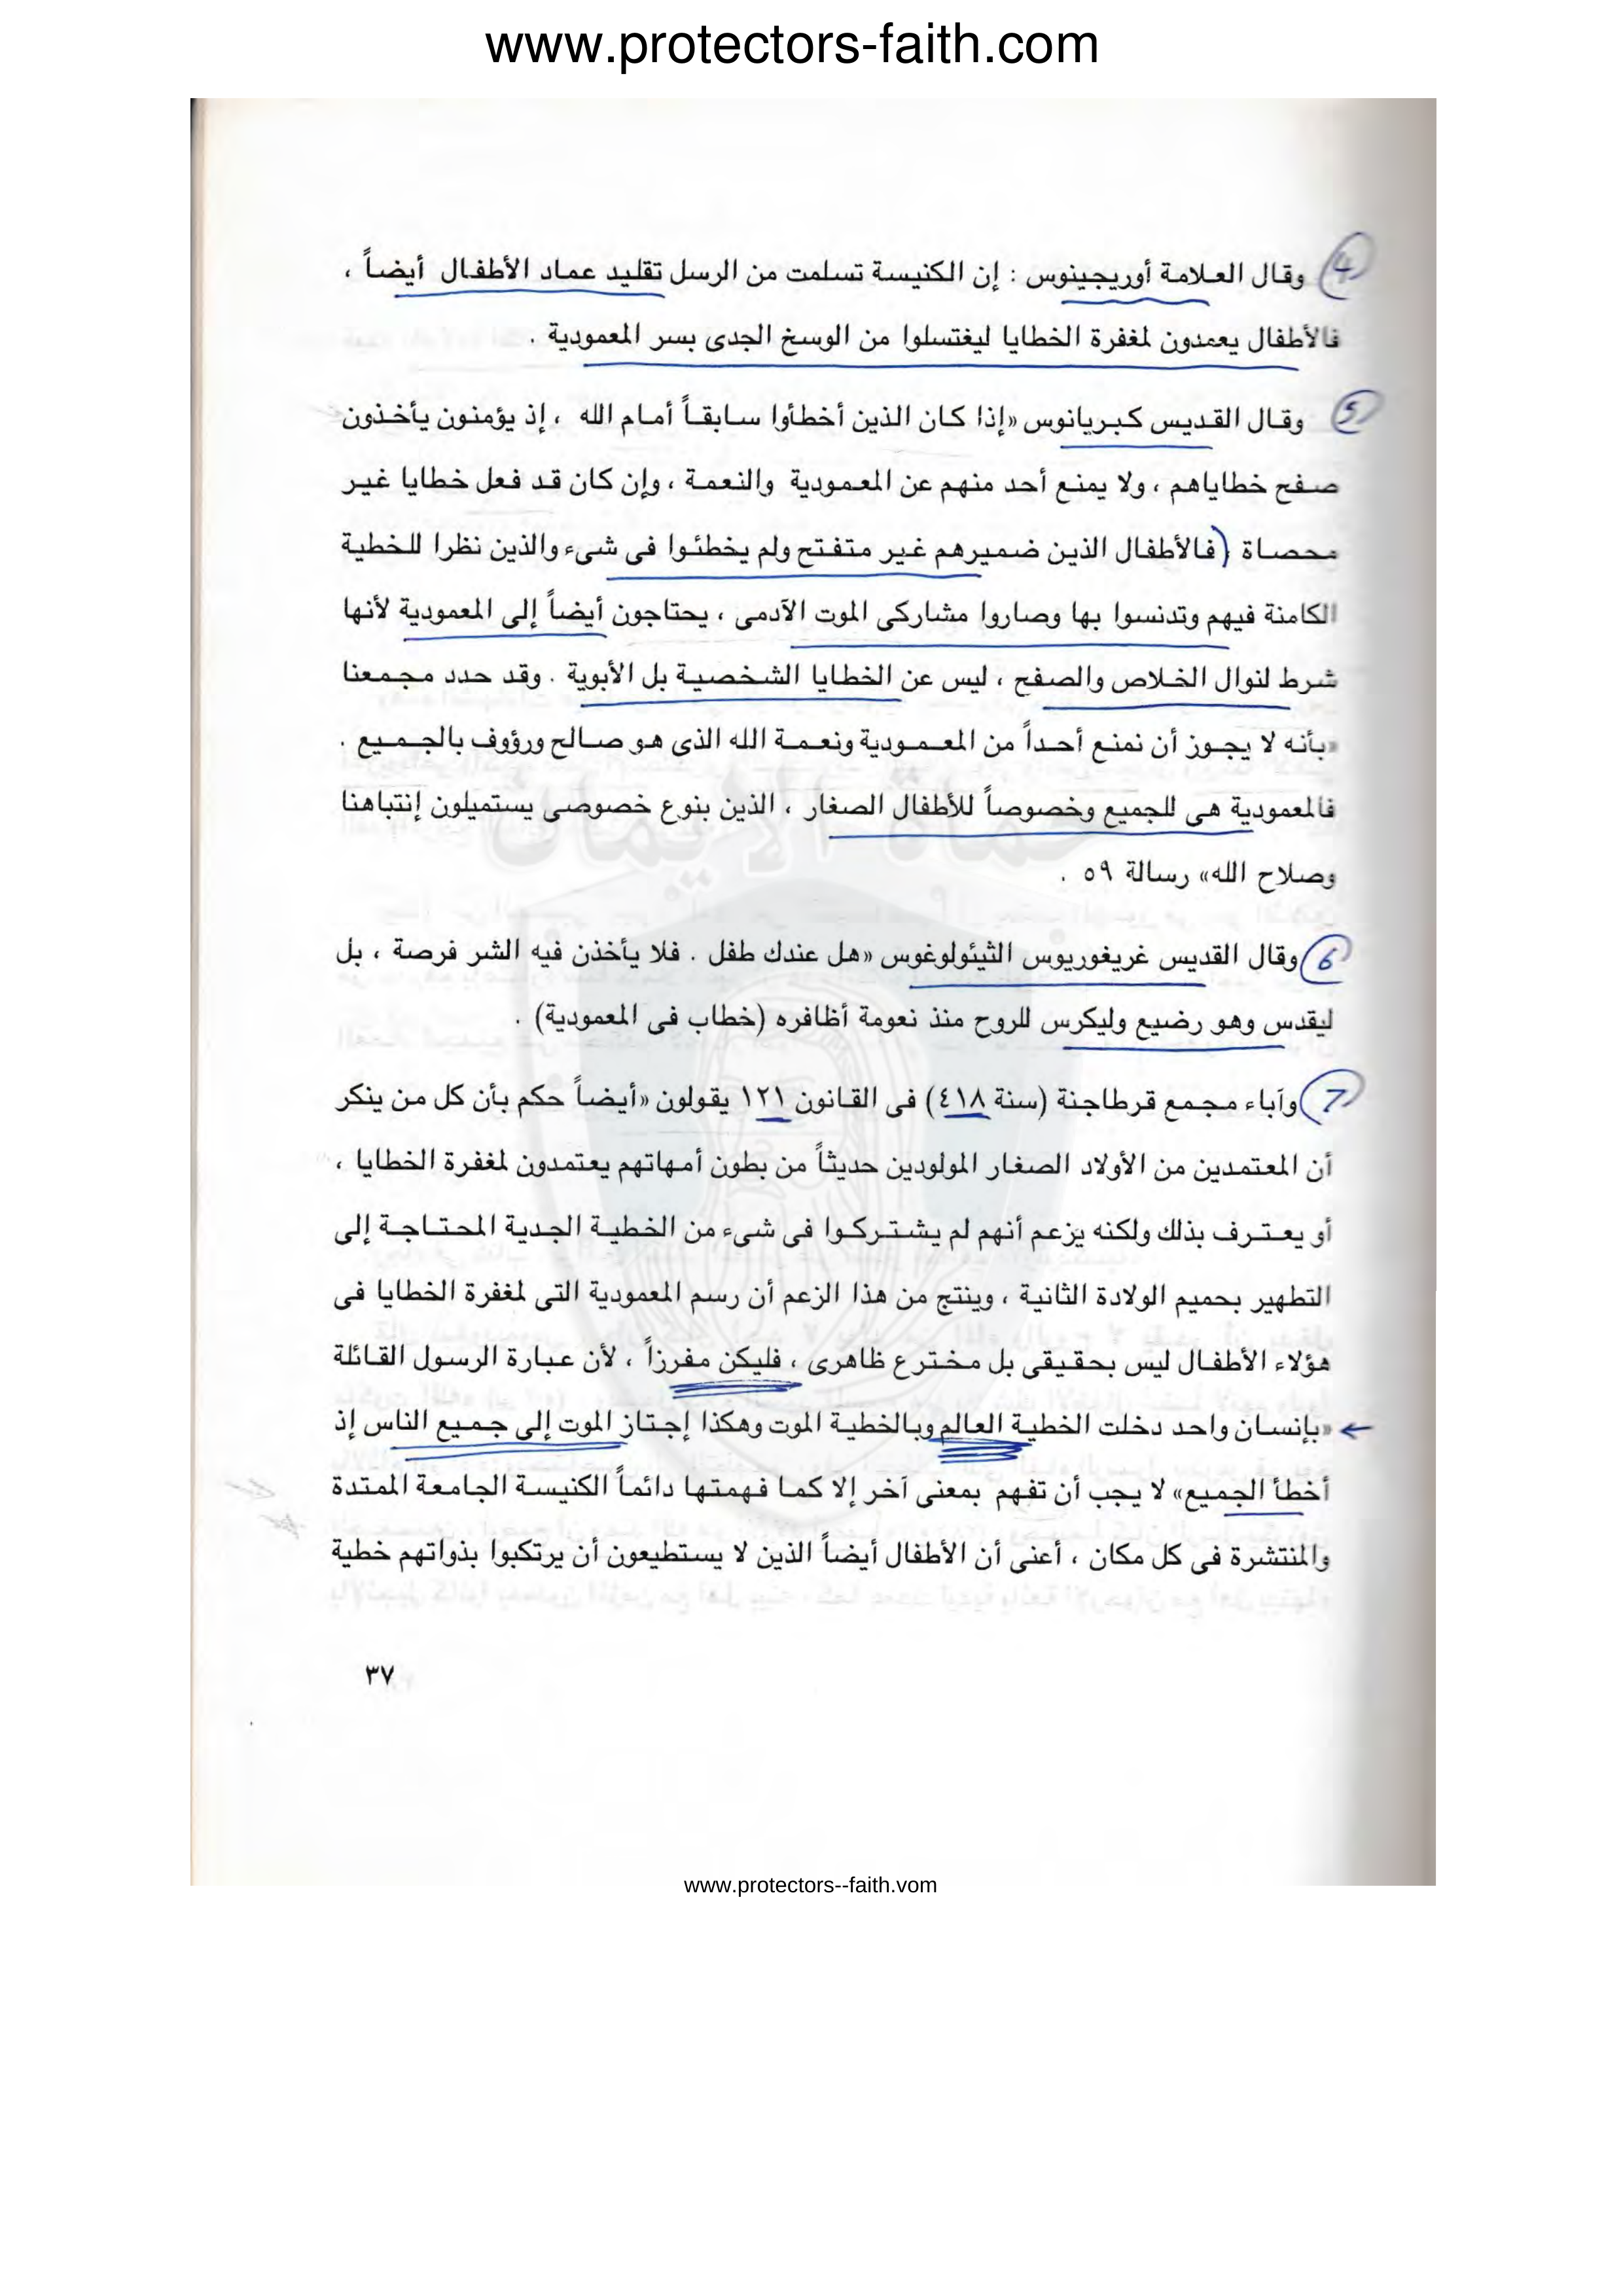 www.protectors-faith.com
4 وقال العلامة أوريجينوس : إن الكنيسة تسلمت من الرسل تقليد عماد الأطفال أيضاً ،
فالأطفال يعمدون لمغفرة الخطايا ليغتسلوا من الوسخ الجدى بسر المعمودية .
5 وقال القديس كبريانوس «إذا كان الذين أخطأوا سابقاً أمام الله ، إذ يؤمنون يأخذون
صفح خطاياهم ، ولا يمنع أحد منهم عن المعمودية والنعمة ، وإن كان قد فعل خطايا غير
محصاة (فالأطفال الذين ضميرهم غير متفتح ولم يخطئوا فى شىء والذين نظرا للخطية
الكامنة فيهم وتدنسوا بها وصاروا مشاركى الموت الآدمى ، يحتاجون أيضاً إلى المعمودية لأنها
شرط لنوال الخلاص والصفح ، ليس عن الخطايا الشخصية بل الأبوية . وقد حدد مجمعنا
«بأنه لا يجوز أن نمنع أحداً من المعمودية ونعمة الله الذى هو صالح ورؤوف بالجميع .
فالمعمودية هى للجميع وخصوصاً للأطفال الصغار ، الذين بنوع خصوصى يستميلون إنتباهنا
وصلاح الله» رسالة ٥٩ .
6 وقال القديس غريغوريوس الثيئولوغوس «هل عندك طفل . فلا يأخذن فيه الشر فرصة ، بل
ليقدس وهو رضيع وليكرس للروح منذ نعومة أظافره (خطاب فى المعمودية) .
7 وآباء مجمع قرطاجنة (سنة ٤١٨) فى القانون ١٢١ يقولون «أيضاً حكم بأن كل من ينكر
أن المعتمدين من الأولاد الصغار المولودين حديثاً من بطون أمهاتهم يعتمدون لمغفرة الخطايا ،
أو يعترف بذلك ولكنه يزعم أنهم لم يشتركوا فى شىء من الخطية الجدية المحتاجة إلى
التطهير بحميم الولادة الثانية ، وينتج من هذا الزعم أن رسم المعمودية التى لمغفرة الخطايا فى
هؤلاء الأطفال ليس بحقيقى بل مخترع ظاهرى ، فليكن مفرزاً ، لأن عبارة الرسول القائلة
«بإنسان واحد دخلت الخطية العالم وبالخطية الموت وهكذا إجتاز الموت إلى جميع الناس إذ
أخطأ الجميع» لا يجب أن تفهم بمعنى آخر إلا كما فهمتها دائماً الكنيسة الجامعة الممتدة
والمنتشرة فى كل مكان ، أعنى أن الأطفال أيضاً الذين لا يستطيعون أن يرتكبوا بذواتهم خطية
٣٧
حماة الايمان
www.protectors--faith.vom